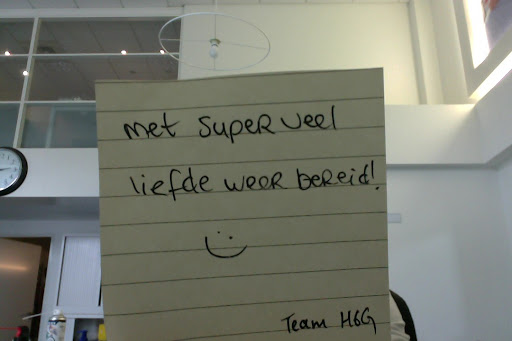 met super veel
liefde weer bereid!
Team H6G